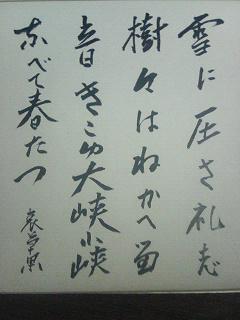 雪に圧さ礼志
樹々はねかへ留
音きこゆ大峡小峡
なべて春たつ
哀草果